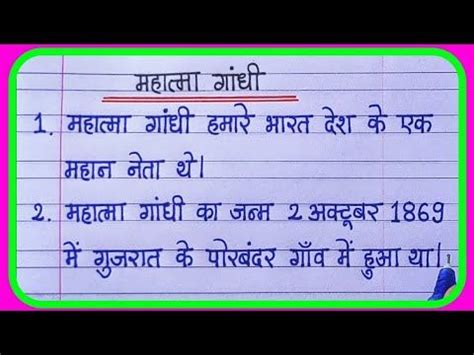 महात्मा गांधी
1. महात्मा गांधी हमारे भारत देश के एक
महान नेता थे।
2. महात्मा गांधी का जन्म 2 अक्टूबर 1869
में गुजरात के पोरबंदर गाँव में हुआ था।